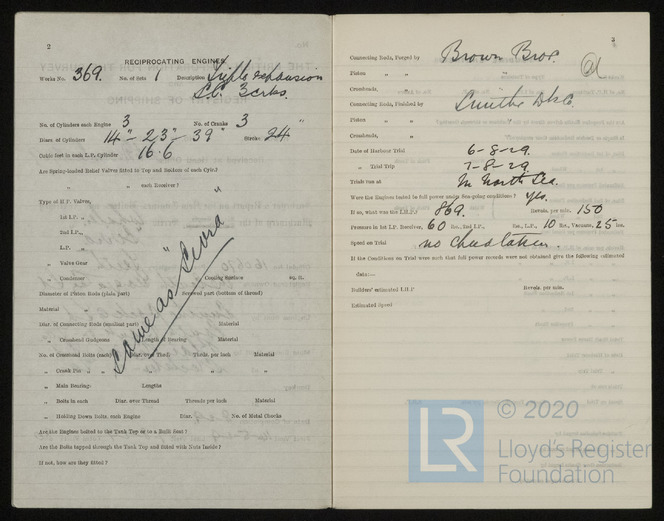 2
RECIPROCATING ENGINES.
Works No. 369. No. of Sets 1 Description Triple expansion
S.C. 3 Crks.
No. of Cylinders each Engine 3 No. of Cranks 3
Diars. of Cylinders 14" - 23" - 39" Stroke 24"
Cubic feet in each L.P. Cylinder 16.6
Are Spring-loaded Relief Valves fitted to Top and Bottom of each Cyl.?
„ „ each Receiver?
Type of H.P. Valves,
1st I.P. „
2nd I.P. „
L.P. „
„ Valve Gear
„ Condenser Cooling Surface sq. ft.
Diameter of Piston Rods (plain part) Screwed part (bottom of thread)
Material
Diar. of Connecting Rods (smallest part) Material
„ Crosshead Gudgeons Length of Bearing Material
No. of Crosshead Bolts (each) Diar. over Thrd. Thrds. per inch Material
„ Crank Pin „ „ „ „
„ Main Bearings Lengths
„ Bolts in each Diar. over Thread Threads per inch Material
„ Holding Down Bolts, each Engine Diar. No. of Metal Chocks
Are the Engines bolted to the Tank Top or to a Built Seat?
Are the Bolts tapped through the Tank Top and fitted with Nuts Inside?
If not, how are they fitted?
Same as
3
Connecting Rods, Forged by Brown Bros.
Piston „ „
Crossheads, „
Connecting Rods, Finished by Smiths Dk Co.
Piston „ „
Crossheads, „
Date of Harbour Trial 6-8-29.
„ Trial Trip 7-8-29.
Trials run at In North Sea.
Were the Engines tested to full power under Sea-going conditions? Yes.
If so, what was the I.H.P.? 869. Revols. per min. 150
Pressure in 1st I.P. Receiver, 60 lbs., 2nd I.P., lbs., L.P., 10 lbs., Vacuum, 25 ins.
Speed on Trial
If the Conditions on Trial were such that full power records were not obtained give the following estimated
data:—
Builders' estimated I.H.P. Revols. per min.
Estimated Speed
LR © 2020
Lloyd's Register
Foundation